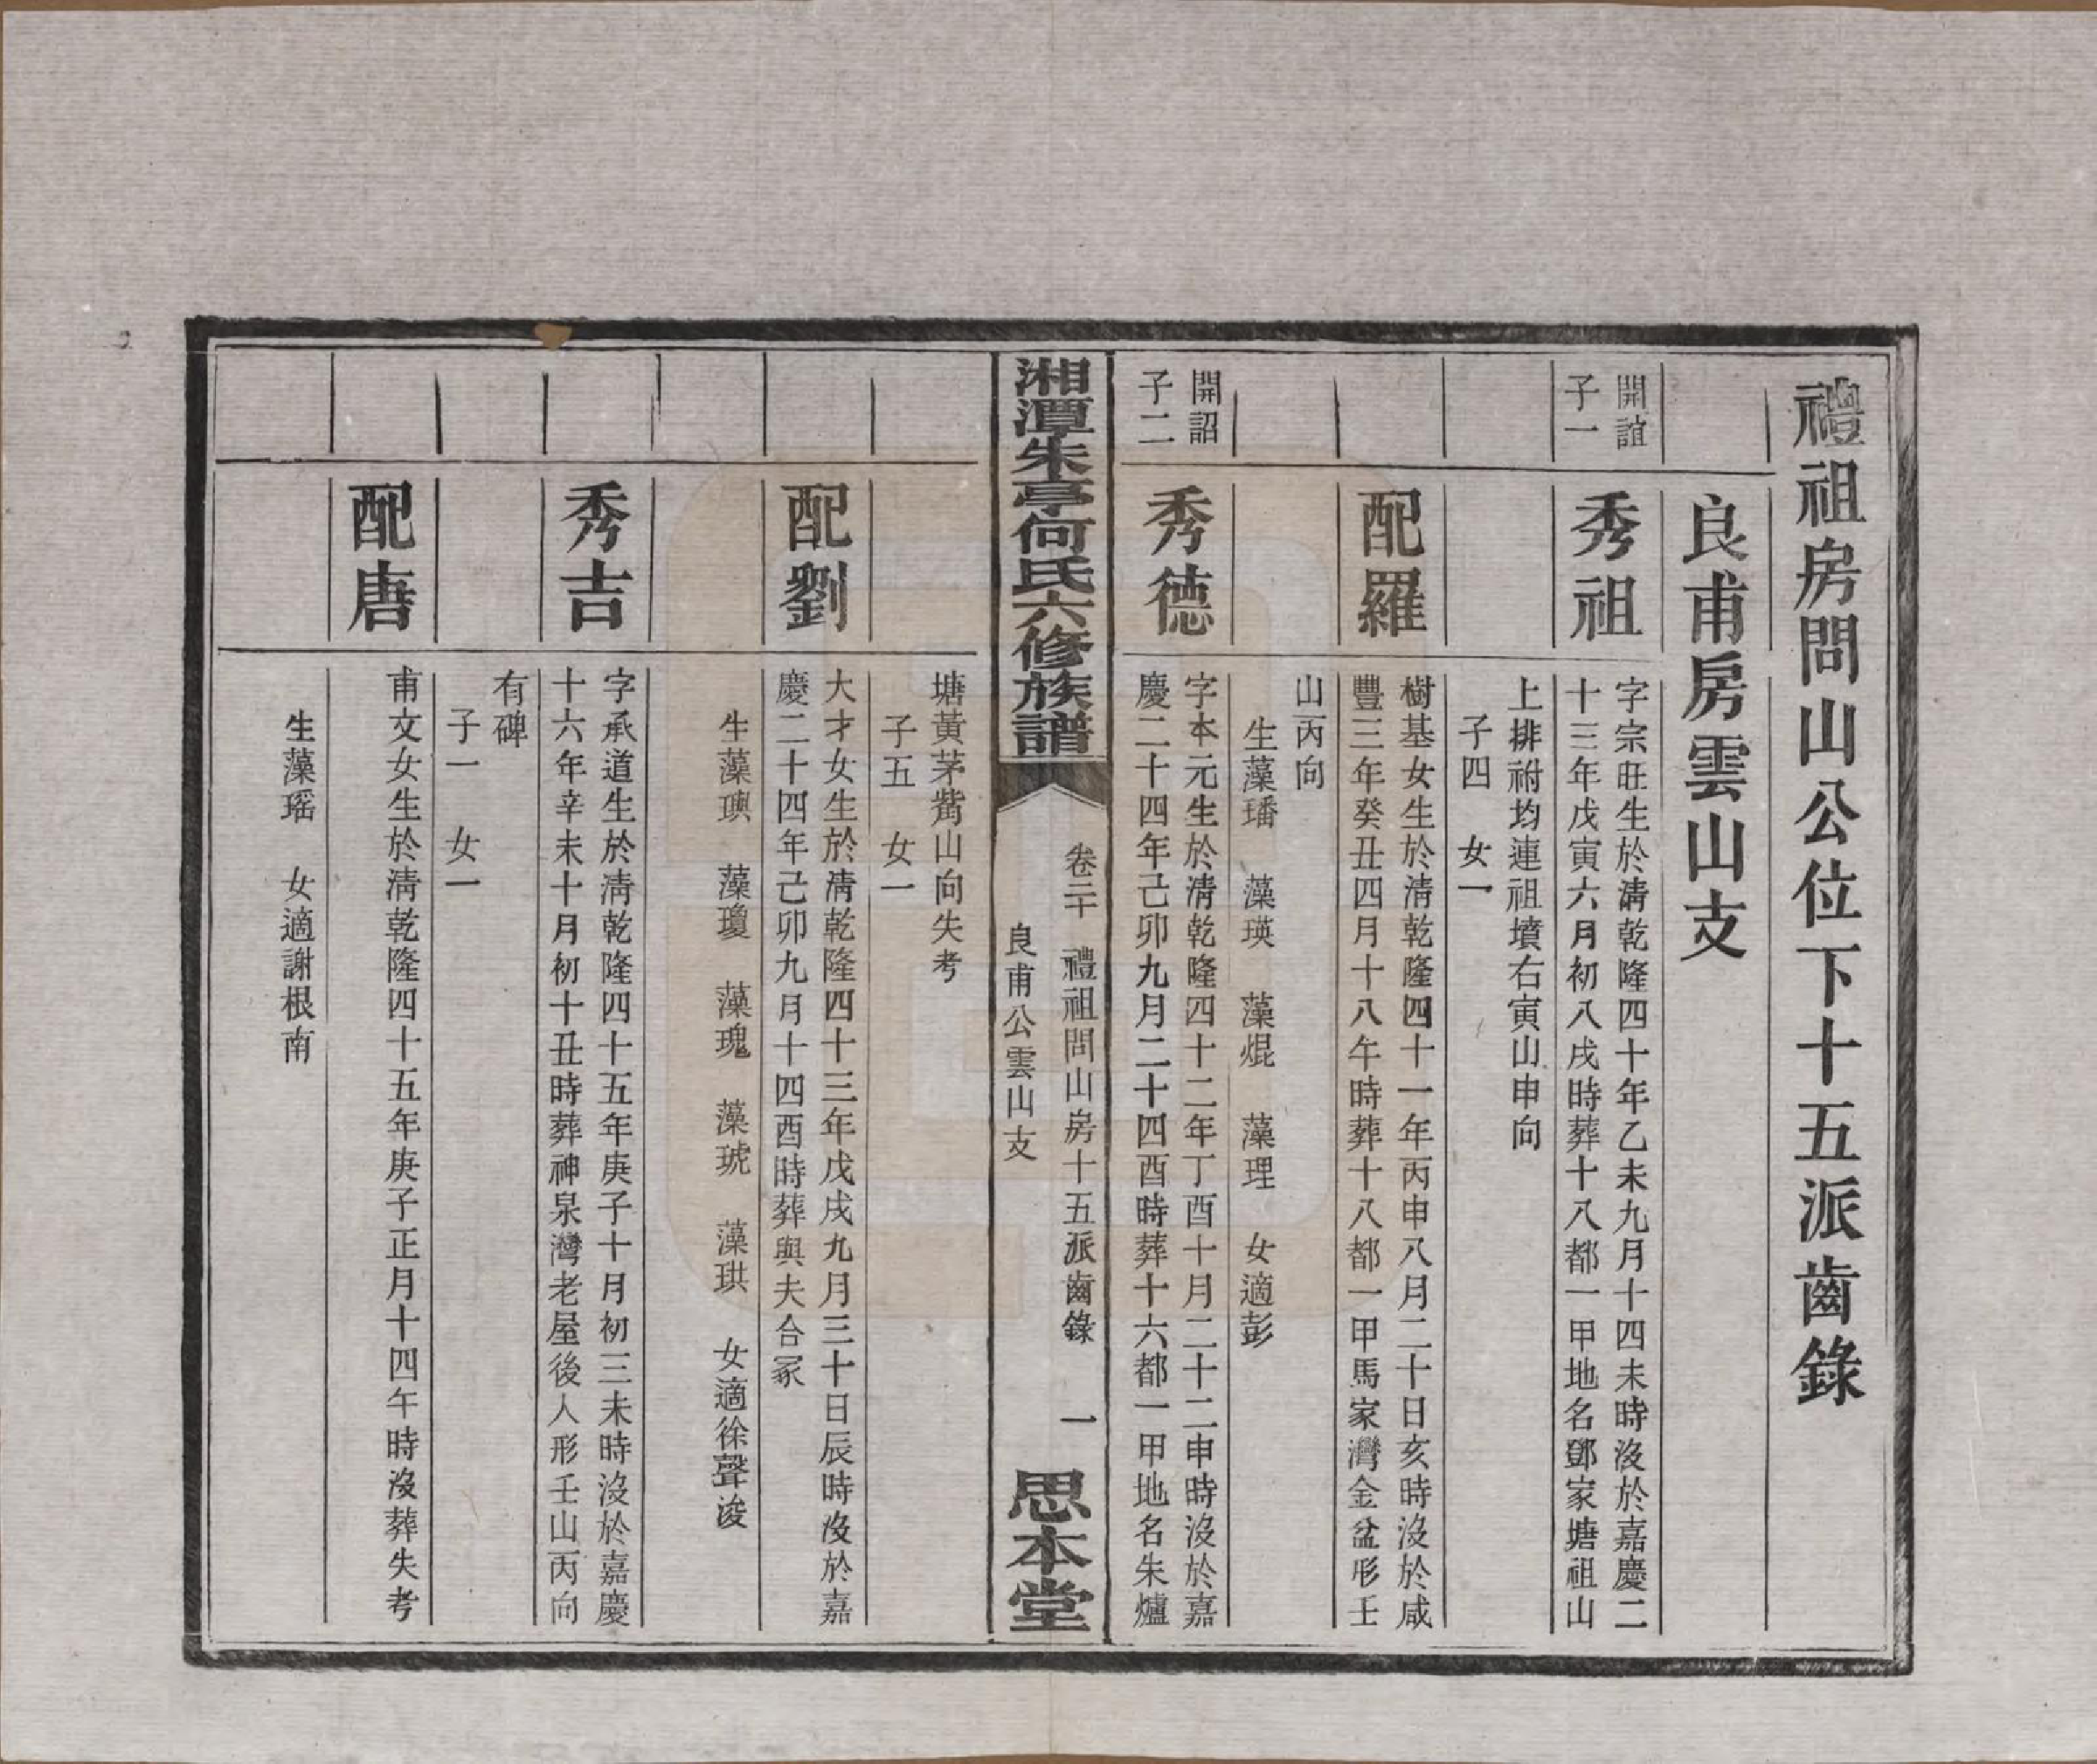 禮祖房問山公位下十五派齒錄
良甫房雲山支
開誼
子一
秀祖
字宗旺生於清乾隆四十年乙未九月十四未時沒於嘉慶二
十三年戊寅六月初八戌時葬十八都一甲地名鄧家塘祖山
上排祔均連祖墳右寅山申向
子四　女一
配羅
樹基女生於清乾隆四十一年丙申八月二十日亥時沒於咸
豐三年癸丑四月十八午時葬十八都一甲馬家灣金盆形壬
山丙向
生藻璠　藻瑛　藻焜　藻理　女適彭
開詔
子二
秀德
字本元生於清乾隆四十二年丁酉十月二十二申時沒於嘉
慶二十四年己卯九月二十四酉時葬十六都一甲地名朱爐
湘潭朱亭何氏六修族譜
卷二十　禮祖問山房十五派齒錄　一
良甫公雲山支
思本堂
塘黃茅觜山向失考
子五　女一
配劉
大才女生於清乾隆四十三年戊戌九月三十日辰時沒於嘉
慶二十四年己卯九月十四酉時葬與夫合冢
生藻璵　藻瓊　藻瑰　藻琥　藻珙　女適徐聲浚
秀吉
字承道生於清乾隆四十五年庚子十月初三未時沒於嘉慶
十六年辛未十月初十丑時葬神泉灣老屋後人形壬山丙向
有碑
子一　女一
配唐
甫文女生於清乾隆四十五年庚子正月十四午時沒葬失考
生藻瑶　女適謝根南